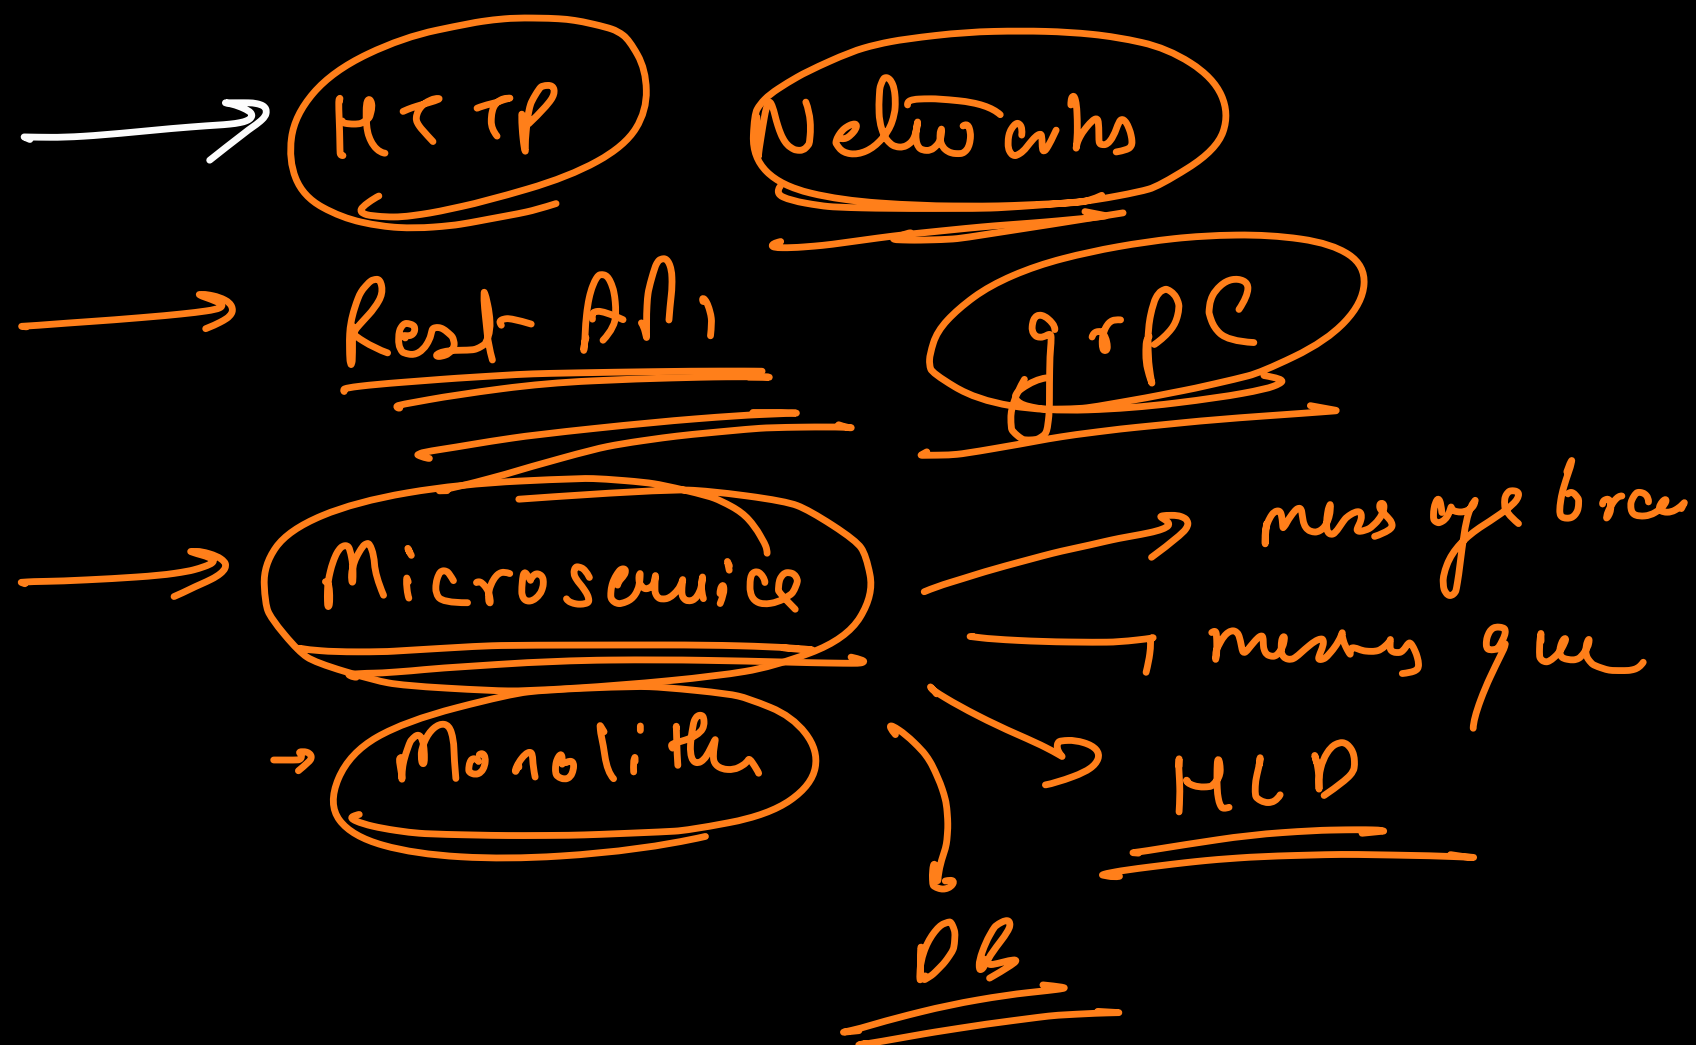 HTTP Networks
Rest API
grpC
Microservice
message
Monolith
HLD
DB